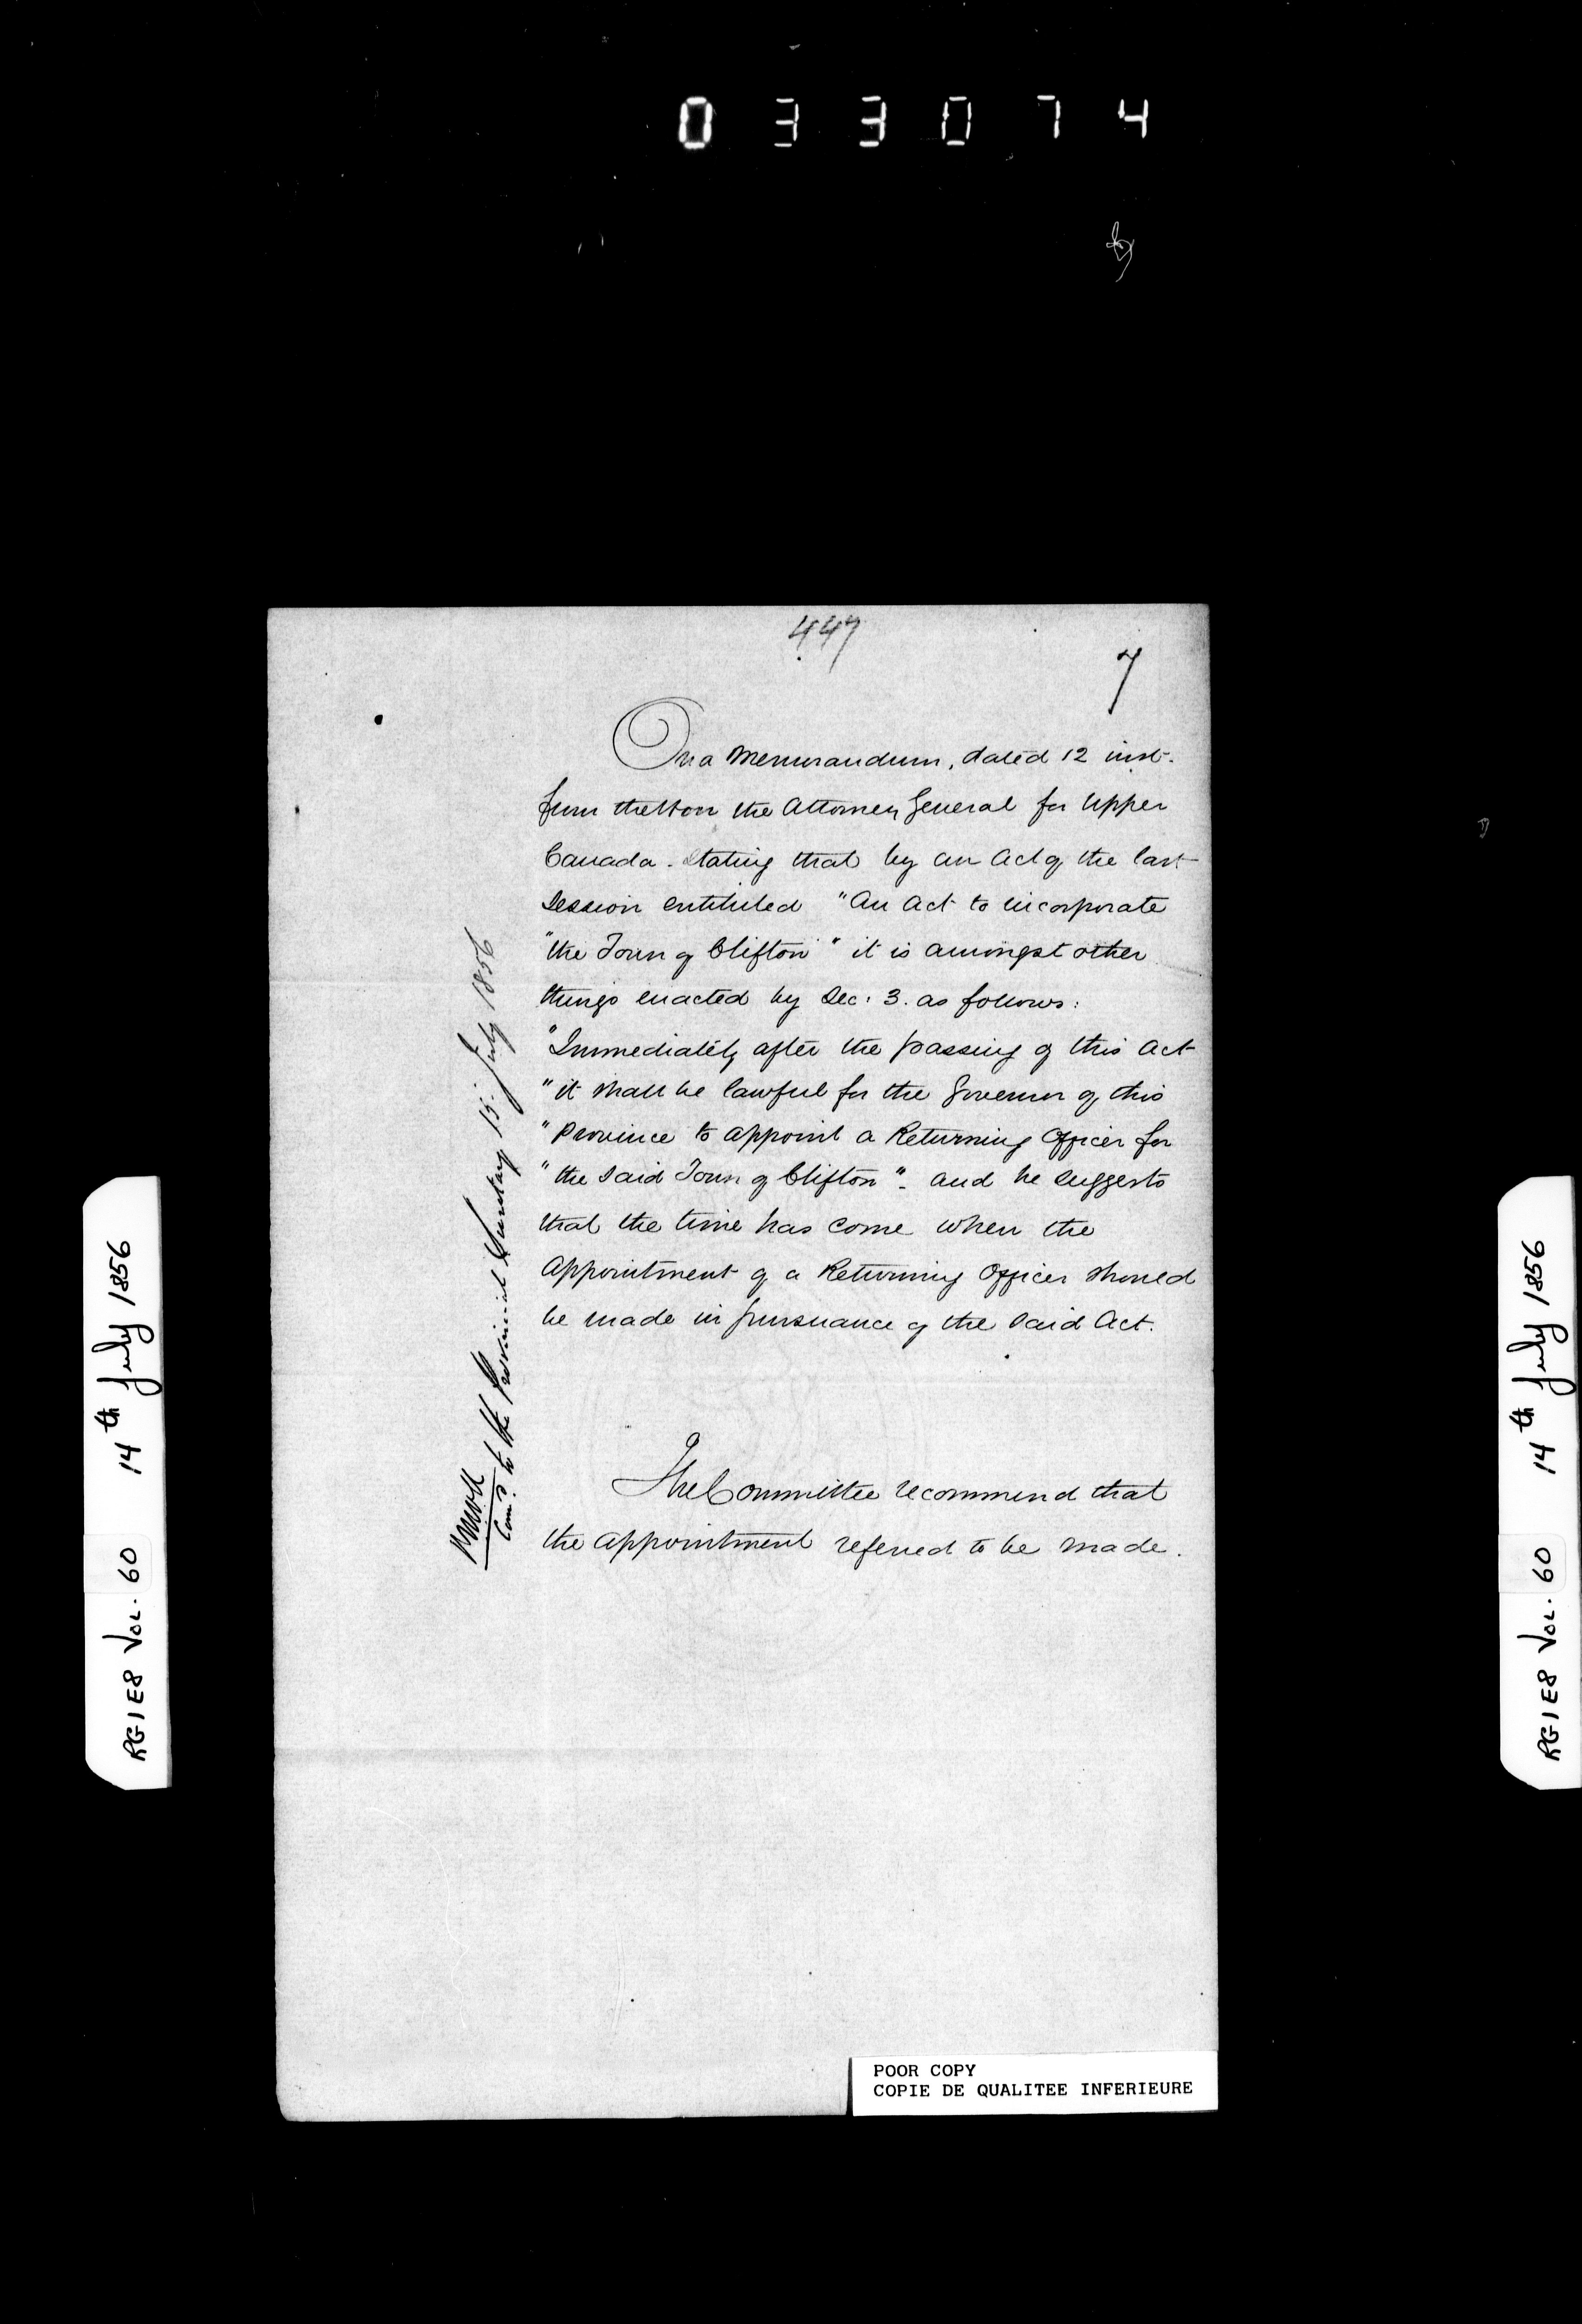 033074
447
7
On a Memorandum, dated 12 inst.
from the Hon the Attorney General for Upper
Canada. Stating that by an Act of the last
Session entituled "An Act to incorporate
"the Town of Clifton" it is amongst other
things enacted by Sec: 3. as follows:
"Immediately after the passing of this Act
"it shall be lawful for the Governor of this
"Province to appoint a Returning Officer for
"the said Town of Clifton". and he suggests
that the time has come when the
Appointment of a Returning Officer should
be made in pursuance of the said Act.
The Committee recommend that
the appointment referred to be made.
Com.d to the Provincial Secretary 15. July 1856
RG1E8 VOL. 60 14th July 1856
RG1E8 VOL. 60 14th July 1856
POOR COPY
COPIE DE QUALITEE INFERIEURE